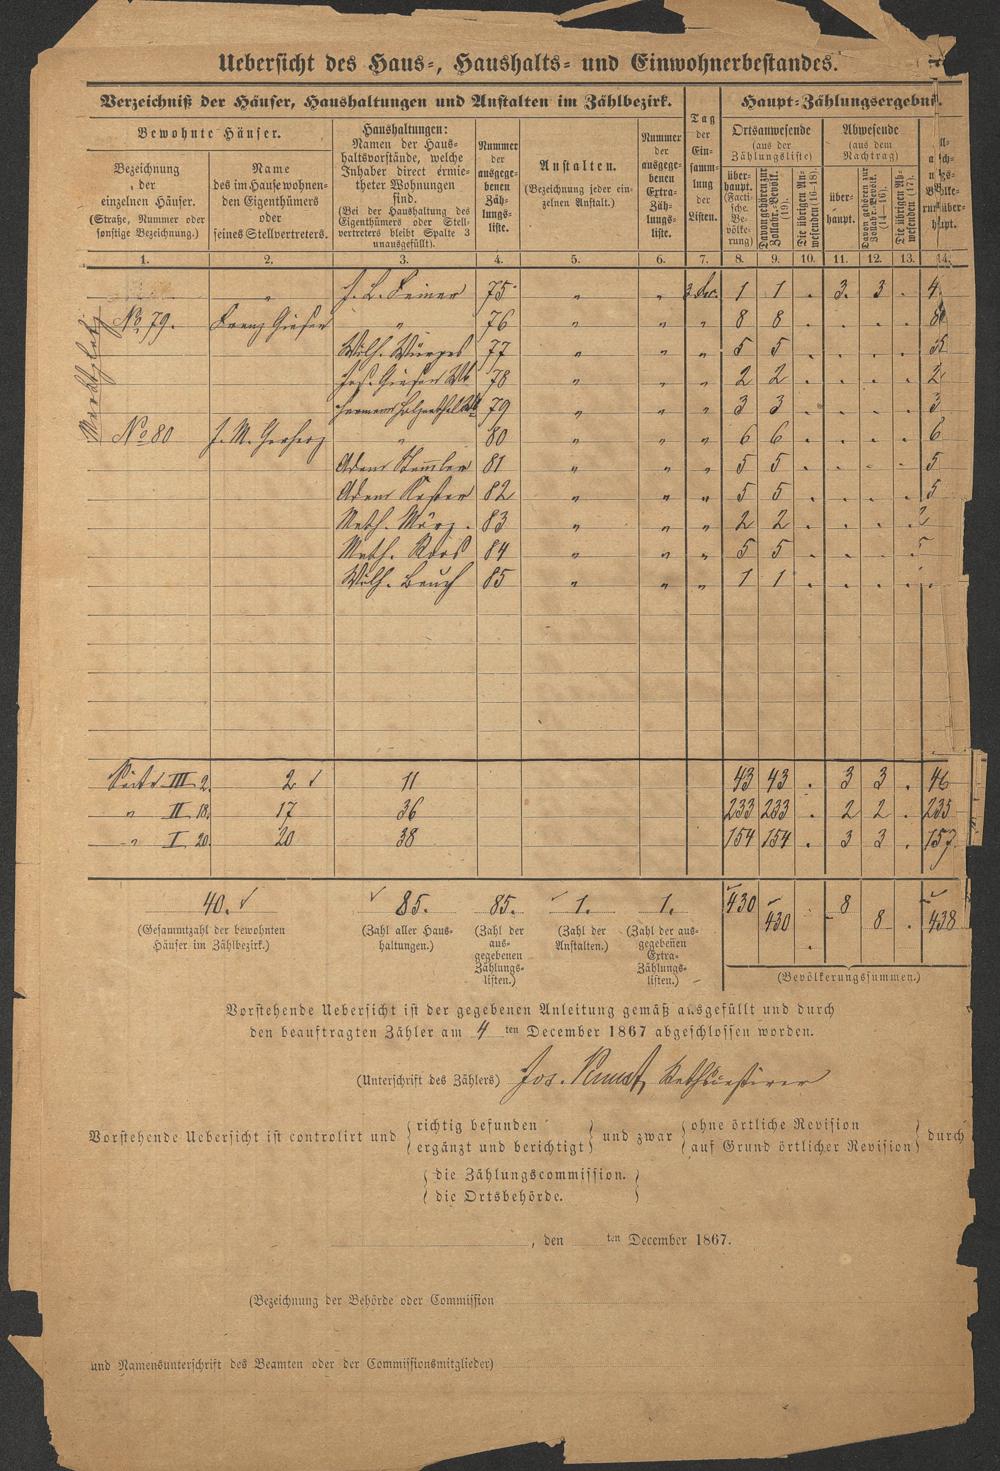 Uebersicht des Haus-, Haushalts- und Einwohnerbestandes.
Verzeichniß der Häuser, Haushaltungen und Anstalten im Zählbezirk.
Tag der Ein-samm-lung der Listen.
Haupt-Zählungsergebni
Bewohnte Häuser.
Bezeichnung der einzelnen Häuser. (Straße, Nummer oder sonstige Bezeichnung.)
Name des im Hause wohnen-den Eigenthümers oder seines Stellvertreters.
Haushaltungen: Namen der Haus-haltsvorstände, welche Inhaber direct ermie-theter Wohnungen sind. (Bei der Haushaltung des Eigenthümers oder Stell-vertreters bleibt Spalte 3 unausgefüllt).
Nummer der ausgege-benen Zäh-lungs-liste.
Anstalten. (Bezeichnung jeder ein-zelnen Anstalt.)
Nummer der ausgege-benen Extra-Zäh-lungs-liste.
Ortsanwesende (aus der Zählungsliste)
Abwesende (aus dem Nachtrag)
über-haupt. (Facti-sche Be-völke-rung)
Davon gehören zur Zollabr.-Bevölk. (19).
Die übrigen An-wesenden (16–18).
über-haupt.
Davon gehören zur Zollabr.-Bevölk. (14–16).
Die übrigen Ab-wesenden (17).
1. 2. 3. 4. 5. 6. 7. 8. 9. 10. 11. 12. 13. 14.
" J. L. 75 " " 3. Dec. 1 1 . 3. 3 . 4
Marktplatz
No 79. Franz Giesen " 76 " " " 8 8 . . . . 8
Wilh. 77 " " " 5 5 . . . . 5
Jos. Giesen 78 " " " 2 2 . . . . 2
Hermann 79 " " " 3 3 . . . . 3
No 80 J. M. " 80 " " " 6 6 . . . . 6
Adam 81 " " " 5 5 . . . . 5
Adam 82 " " " 5 5 . . . . 5
Math. 83 " " " 2 2 . . . . 2
Math. Roos 84 " " " 5 5 . . . . 5
Wilh. Bauch 85 " " " 1 1 . . . . .
Seite III 2. 2 11 43 43 . 3 3 . 46
" II 18. 17 36 233 233 . 2 2 . 235
" I 20. 20 38 154 154 . 3 3 . 157
40. 85. 85. 1. 1. 430 430 . 8 8 . 438
(Gesammtzahl der bewohnten Häuser im Zählbezirk.)
(Zahl aller Haus-haltungen.)
(Zahl der aus-gegebenen Zählungs-listen.)
(Zahl der Anstalten.)
(Zahl der aus-gegebenen Extra-Zählungs-listen.)
(Bevölkerungssummen.)
Vorstehende Uebersicht ist der gegebenen Anleitung gemäß ausgefüllt und durch
den beauftragten Zähler am 4 ten December 1867 abgeschlossen worden.
(Unterschrift des Zählers) Jos.
Vorstehende Uebersicht ist controlirt und { richtig befunden / ergänzt und berichtigt } und zwar { ohne örtliche Revision / auf Grund örtlicher Revision } durch
{ die Zählungscommission. }
{ die Ortsbehörde. }
, den ten December 1867.
(Bezeichnung der Behörde oder Commission
und Namensunterschrift des Beamten oder der Commissionsmitglieder)